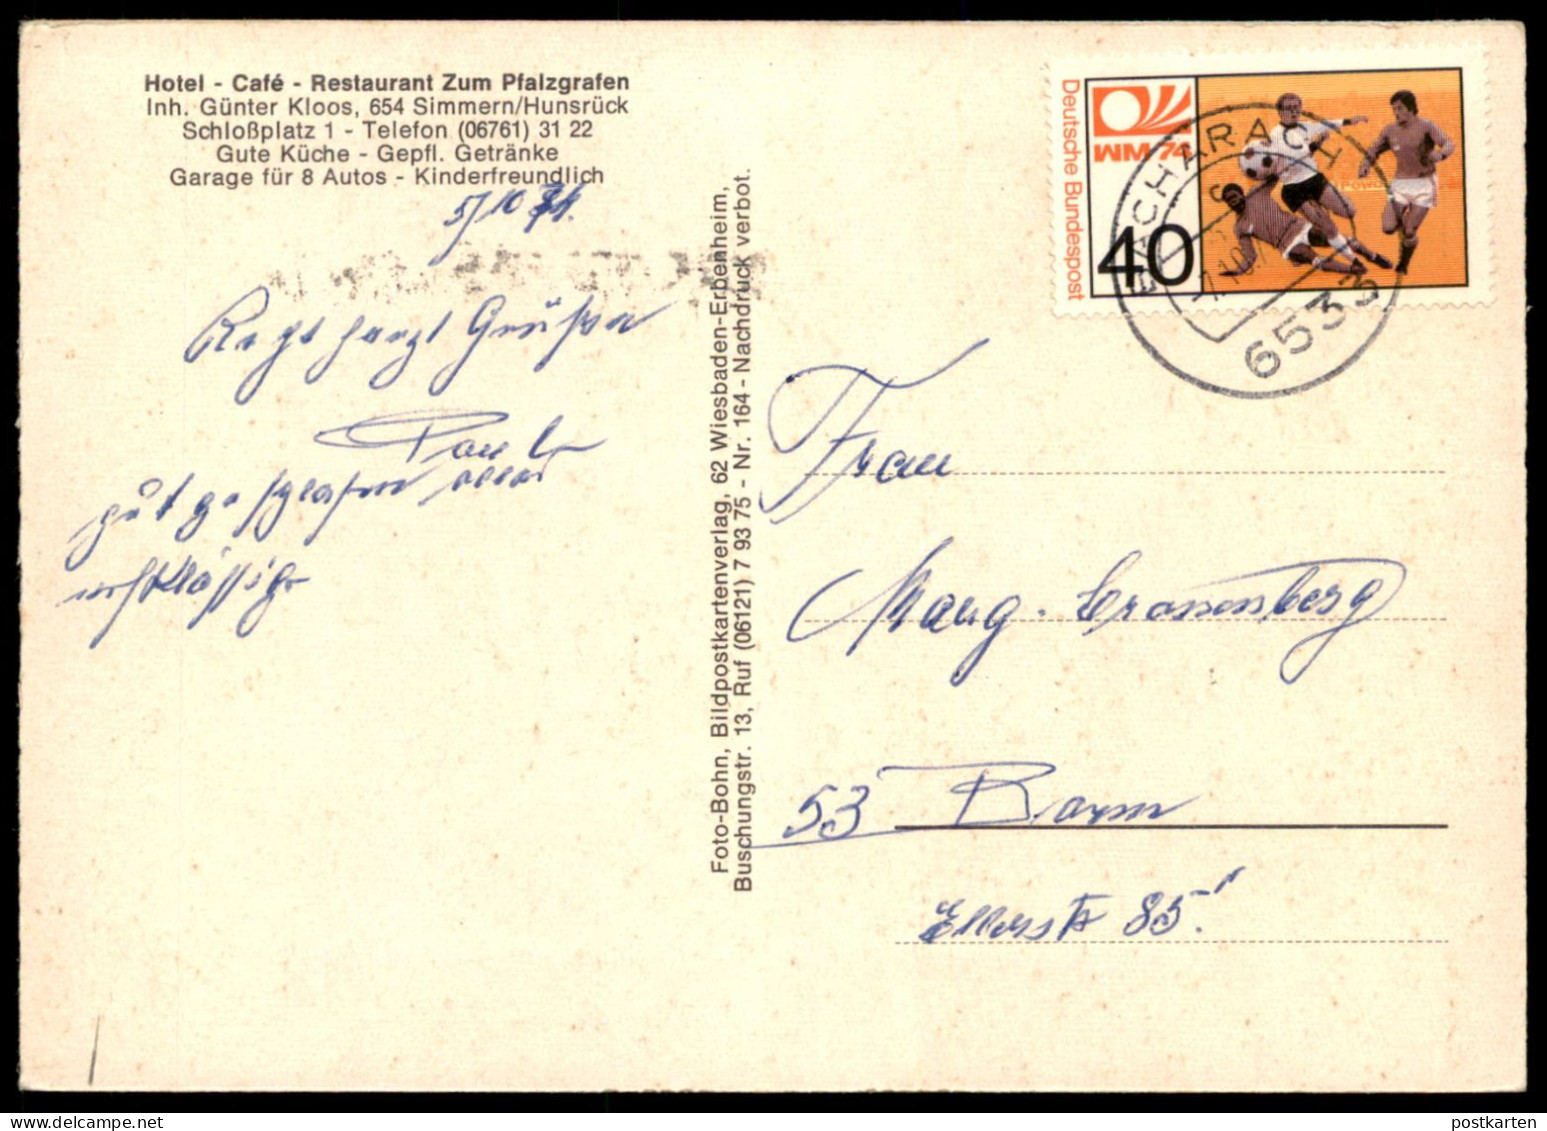 Hotel - Café - Restaurant Zum Pfalzgrafen
Inh. Günter Kloos, 654 Simmern/Hunsrück
Schloßplatz 1 - Telefon (06761) 31 22
Gute Küche - Gepfl. Getränke
Garage für 8 Autos - Kinderfreundlich
5/10 74.
Recht herzl Grüße
Paul
gut geschlafen alles
erstklassige
Foto-Bohn, Bildpostkartenverlag, 62 Wiesbaden-Erbenheim,
Buschungstr. 13, Ruf (06121) 7 93 75 - Nr. 164 - Nachdruck verbot.
Deutsche Bundespost
WM 74
40
BACHARACH
653
Frau
Marg. Cronenberg
53 Bonn
Ellerstr 85
postkarten